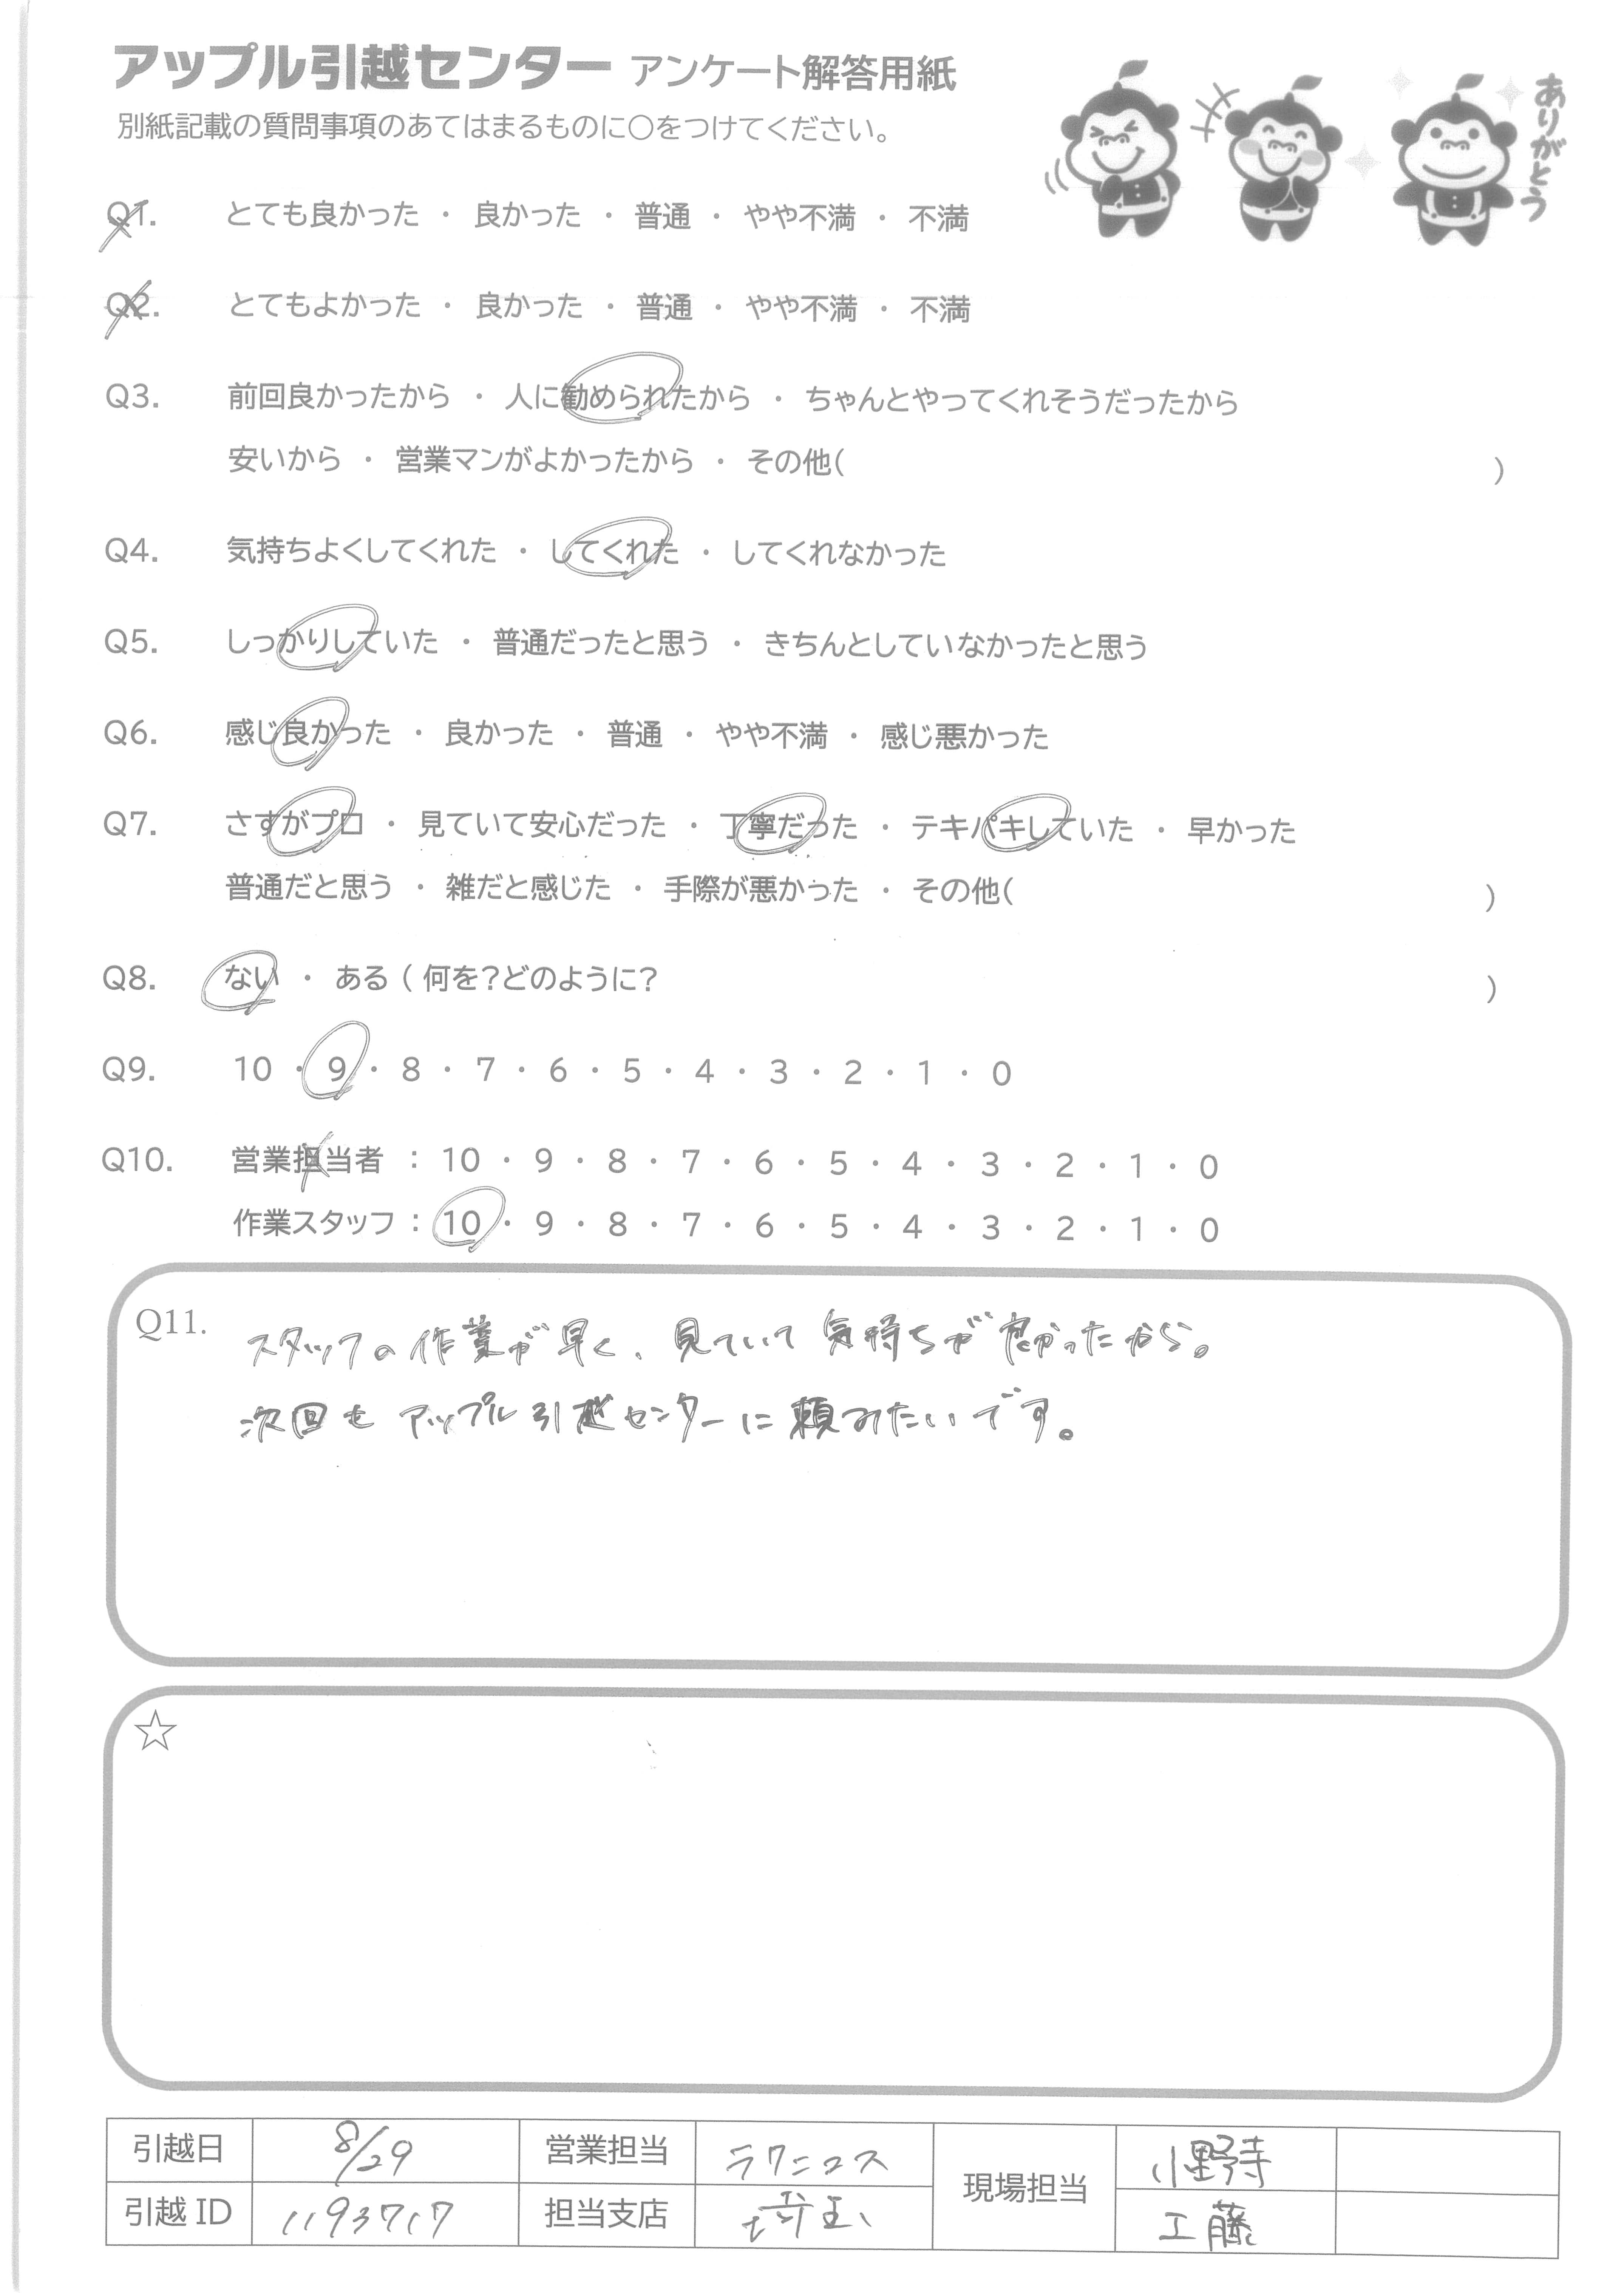 アップル引越センター アンケート解答用紙
別紙記載の質問事項のあてはまるものに○をつけてください。
ありがとう
Q1. とても良かった ・ 良かった ・ 普通 ・ やや不満 ・ 不満
Q2. とてもよかった ・ 良かった ・ 普通 ・ やや不満 ・ 不満
Q3. 前回良かったから ・ 人に勧められたから ・ ちゃんとやってくれそうだったから
安いから ・ 営業マンがよかったから ・ その他( )
Q4. 気持ちよくしてくれた ・ してくれた ・ してくれなかった
Q5. しっかりしていた ・ 普通だったと思う ・ きちんとしていなかったと思う
Q6. 感じ良かった ・ 良かった ・ 普通 ・ やや不満 ・ 感じ悪かった
Q7. さすがプロ ・ 見ていて安心だった ・ 丁寧だった ・ テキパキしていた ・ 早かった
普通だと思う ・ 雑だと感じた ・ 手際が悪かった ・ その他( )
Q8. ない ・ ある ( 何を?どのように? )
Q9. 10 ・ 9 ・ 8 ・ 7 ・ 6 ・ 5 ・ 4 ・ 3 ・ 2 ・ 1 ・ 0
Q10. 営業担当者 : 10 ・ 9 ・ 8 ・ 7 ・ 6 ・ 5 ・ 4 ・ 3 ・ 2 ・ 1 ・ 0
作業スタッフ : 10 ・ 9 ・ 8 ・ 7 ・ 6 ・ 5 ・ 4 ・ 3 ・ 2 ・ 1 ・ 0
Q11. スタッフの作業が早く、見ていて気持ちが良かったから。
次回もアップル引越センターに頼みたいです。
☆
引越日 8/29 営業担当 ラクニコス 現場担当 小野寺
引越ID 1193717 担当支店 埼玉 工藤